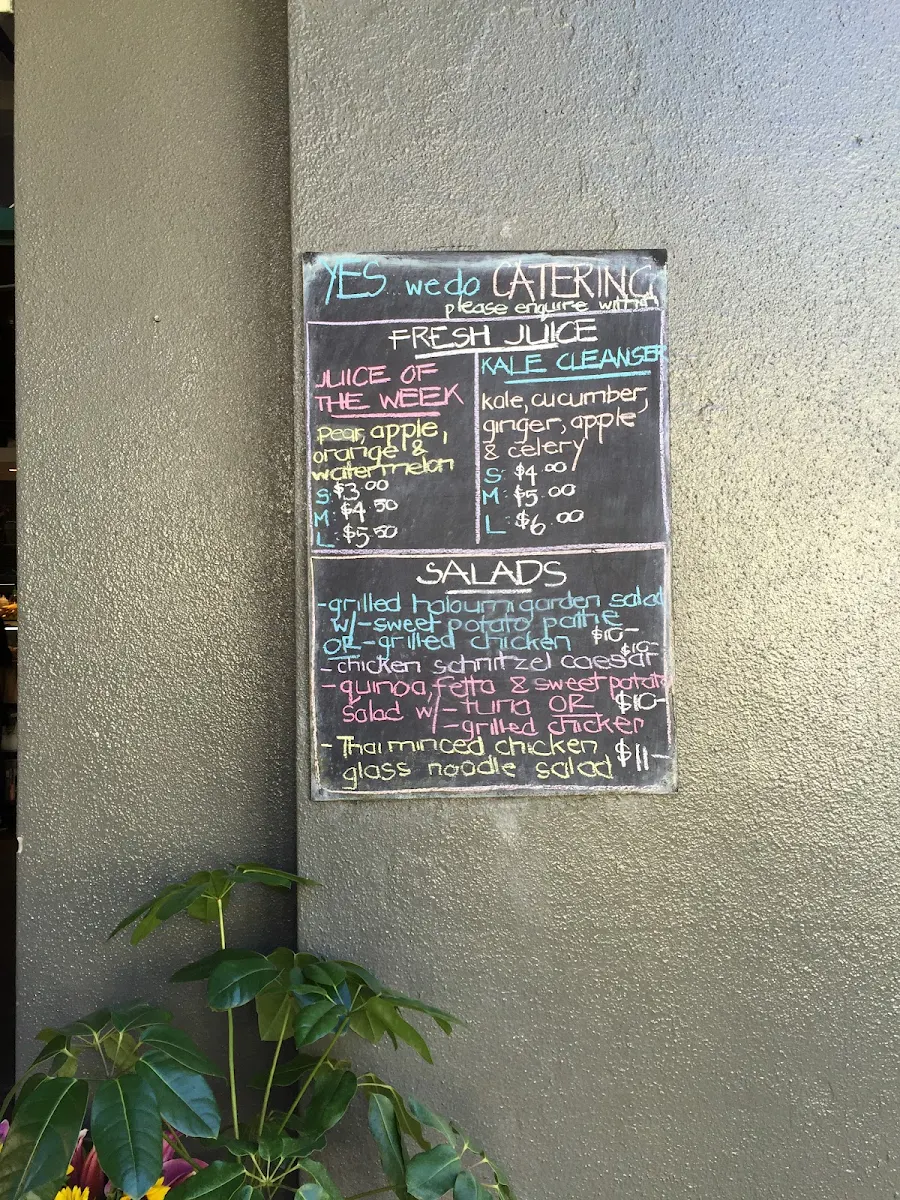 YES we do CATERING
please enquire within
FRESH JUICE
JUICE OF
THE WEEK
pear, apple,
orange &
watermelon
S: $3.00
M: $4.50
L: $5.50
KALE CLEANSER
kale, cucumber,
ginger, apple
& celery
S: $4.00
M: $5.00
L: $6.00
SALADS
-grilled haloumi garden salad
w/-sweet potato pattie
OR-grilled chicken $10-
-chicken schnitzel caesar $10-
-quinoa, fetta & sweet potato
salad w/-tuna OR $10-
-grilled chicken
-Thai minced chicken
glass noodle salad $11-